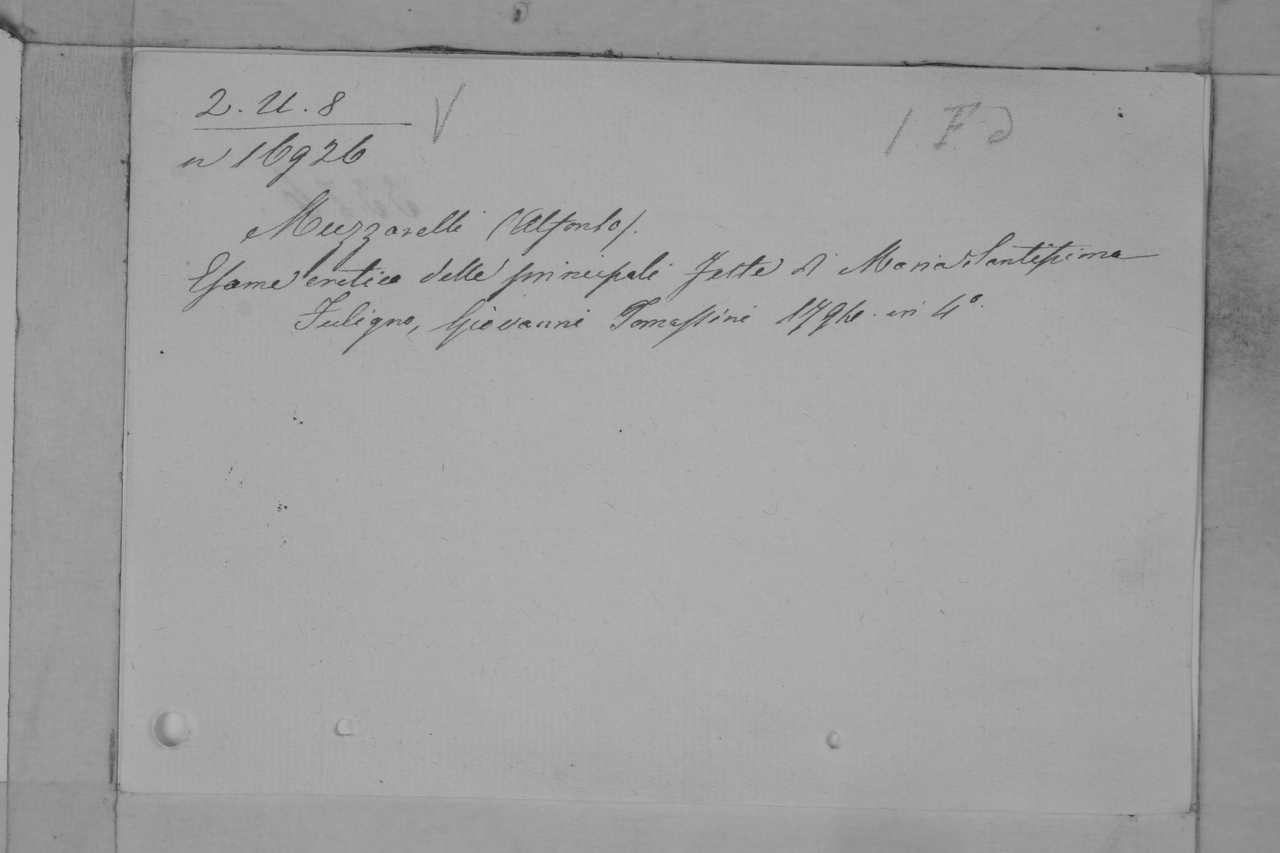 2. U. 8 V
n 16926
1 F
Muzzarelli (Alfonso).
Esame critico delle principali Feste di Maria Santissima
Fuligno, Giovanni Tomassini 1794. in 4º.